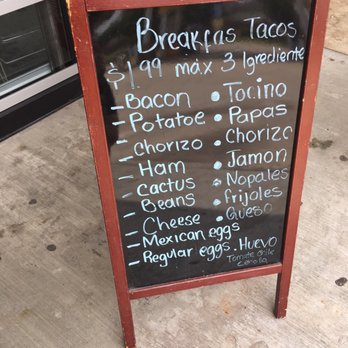 Breakfas Tacos
$1.99 máx 3 Igrediente
- Bacon • Tocino
- Potatoe • Papas
- Chorizo • Chorizo
- Ham • Jamon
- Cactus • Nopales
- Beans • frijoles
- Cheese • Queso
- Mexican eggs
- Regular eggs. Huevo
Tomate chile
cebolla